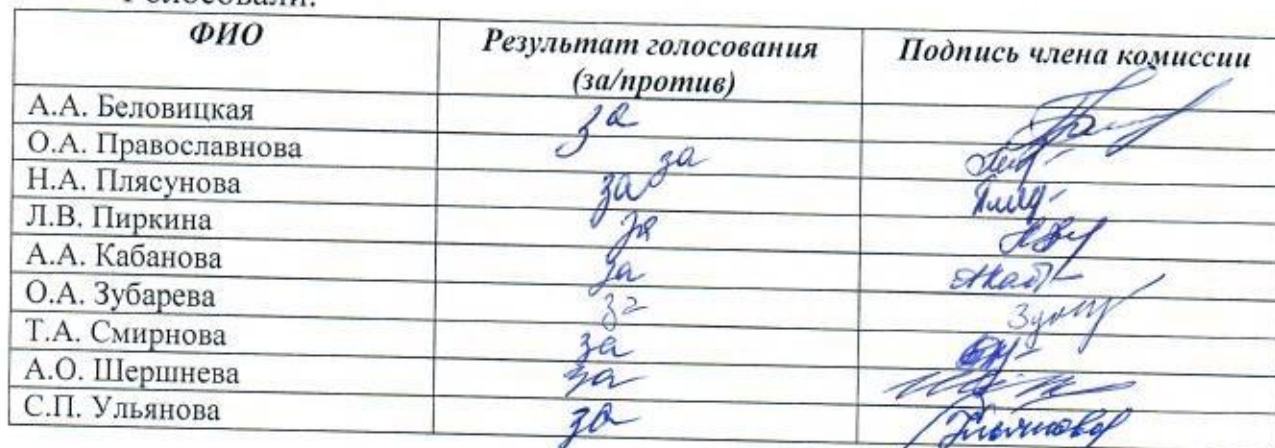 Голосовали:
ФИО Результат голосования (за/против) Подпись члена комиссии
А.А. Беловицкая за
О.А. Православнова за
Н.А. Плясунова за
Л.В. Пиркина за
А.А. Кабанова за
О.А. Зубарева за
Т.А. Смирнова за
А.О. Шершнева за
С.П. Ульянова за